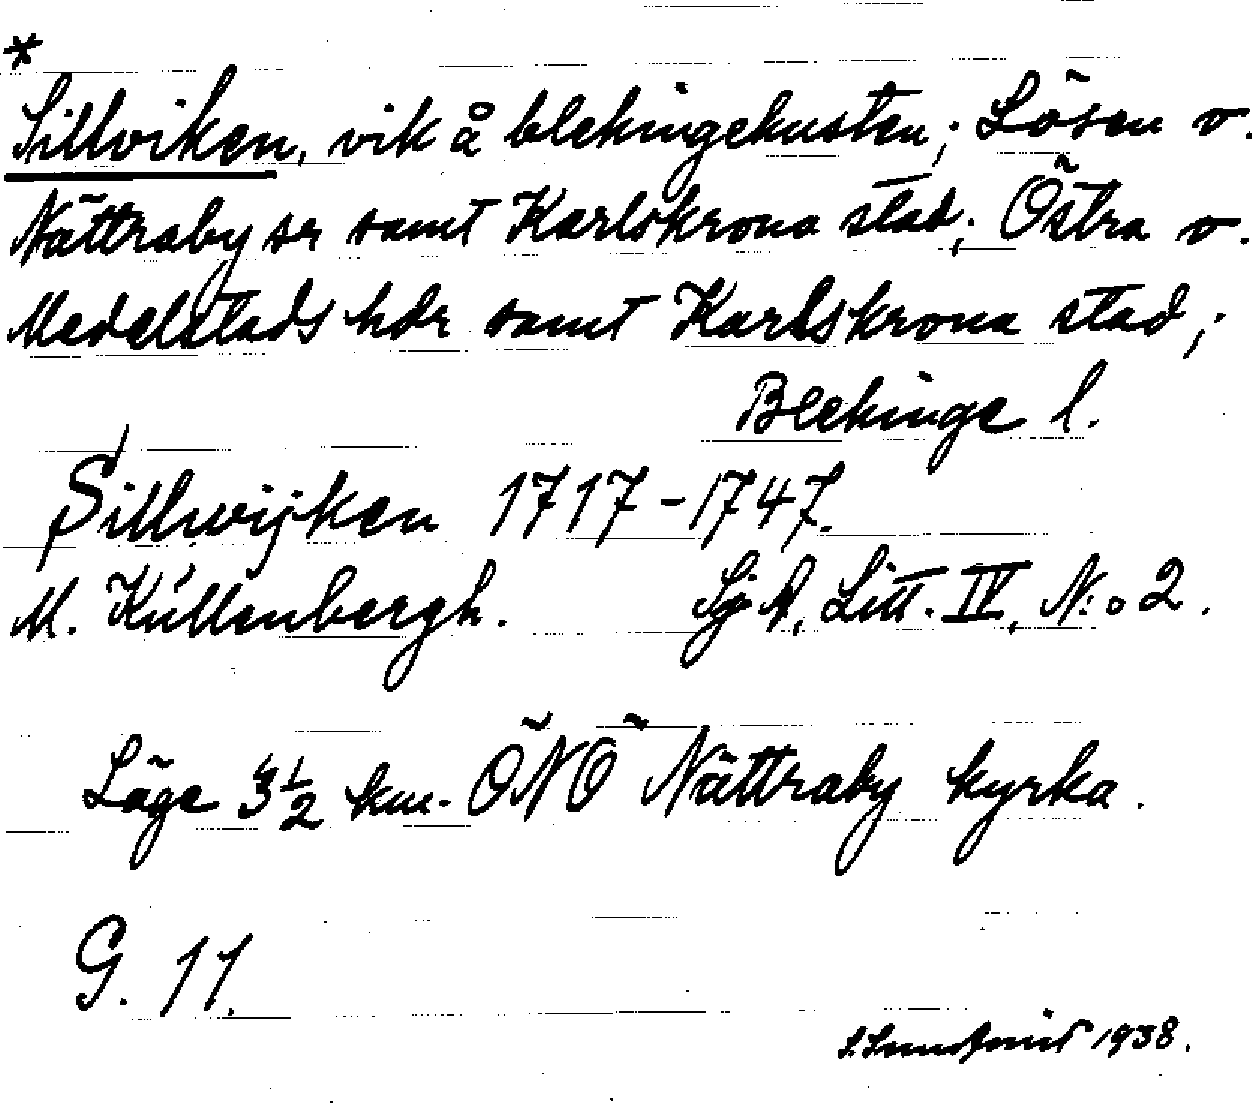 *
Sillviken, vik å blekingekusten; Lösen o.
Nättraby snr samt Karlskrona stad; Östra o.
Medelstads hdr samt Karlskrona stad;
Blekinge l.
Sillwijken 1717-1747.
M. Küllenbergh. SjöA, Litt. IV, N:o 2.
Läge 3 1/2 km. ÖNÖ Nättraby kyrka.
G. 11.
1938.